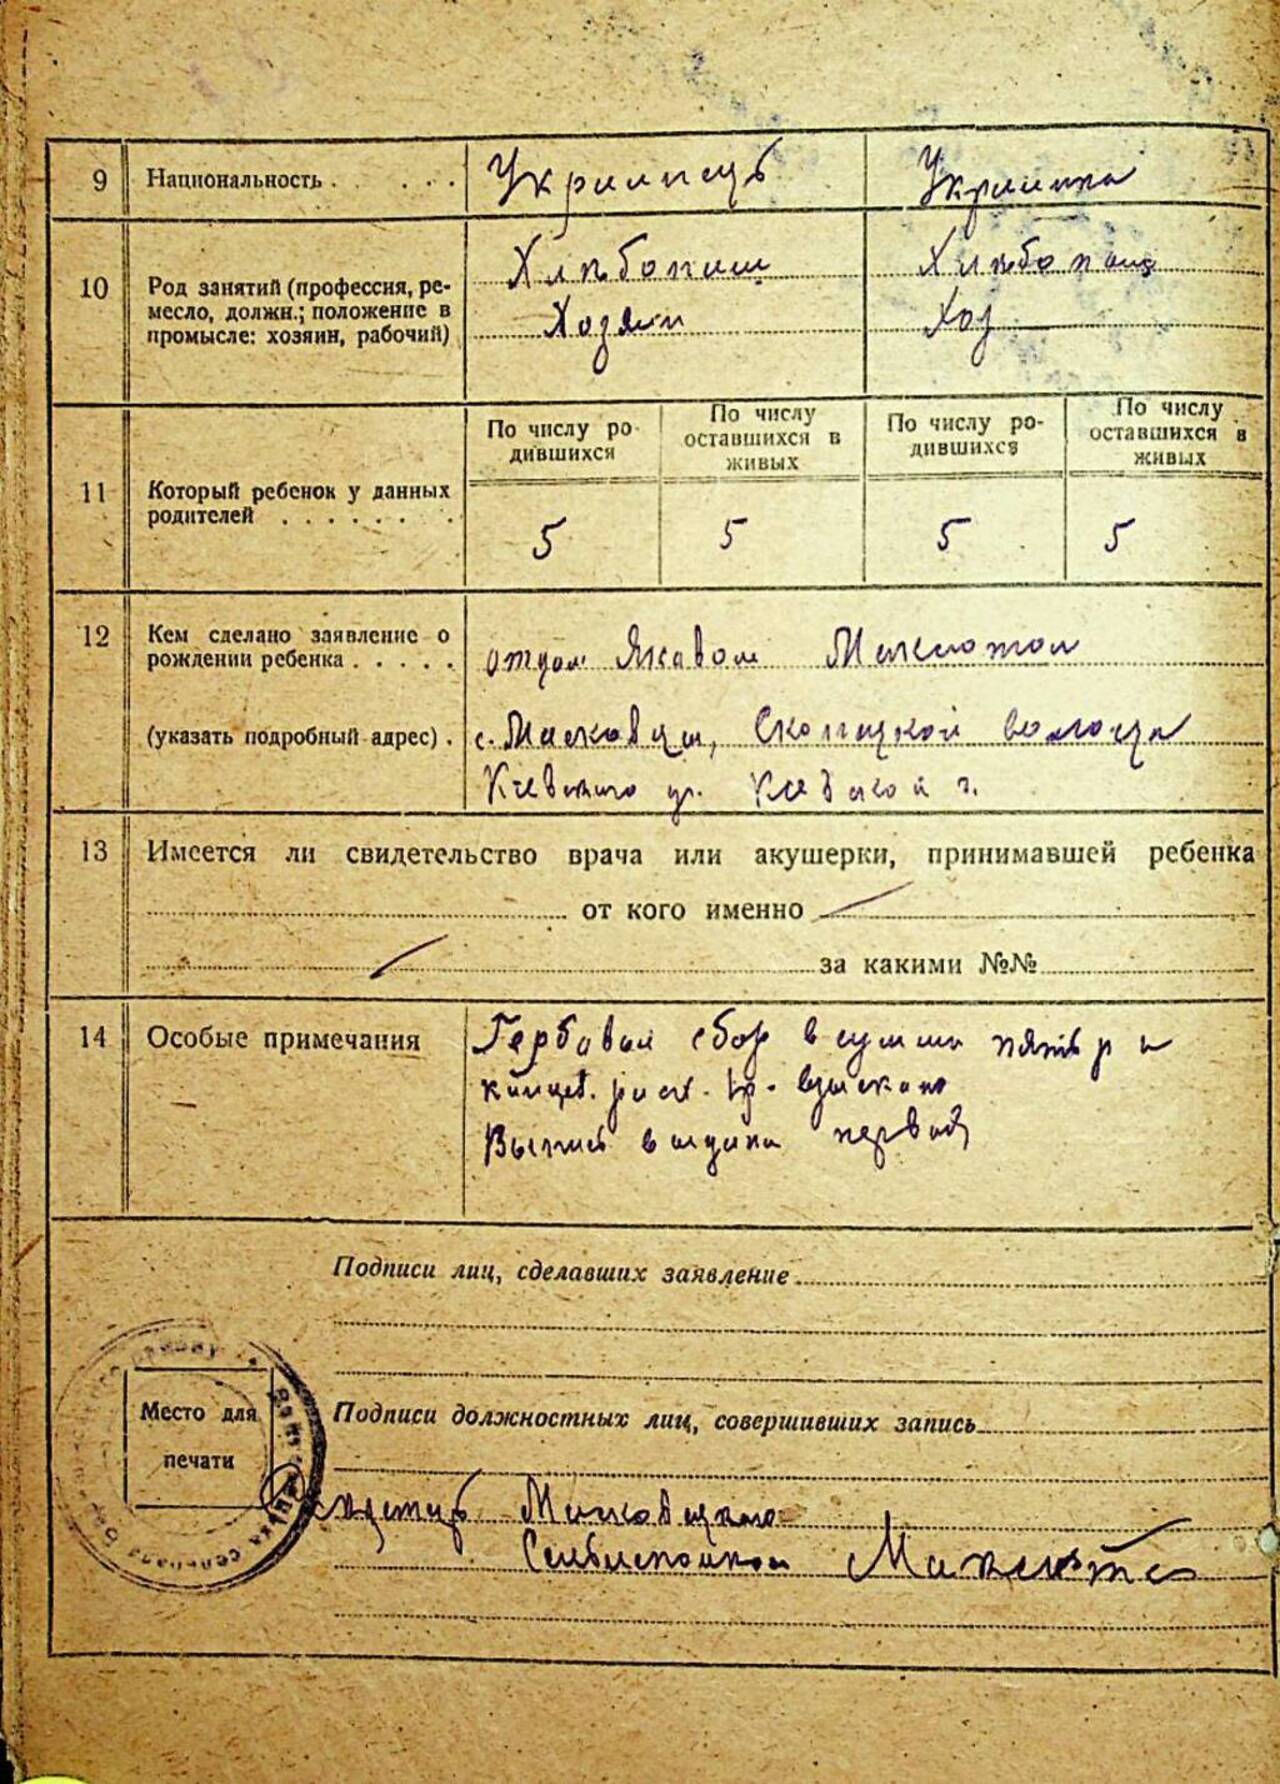 9 Национальность Украинець Украинка
10 Род занятий (профессия, ре-
месло, должн.; положение в
промысле: хозяин, рабочий)
Хлѣбопаш Хлѣбопаш
Хозяин Хоз
11 Который ребенок у данных
родителей
По числу ро-
дившихся
По числу
оставшихся в
живых
По числу ро-
дившихся
По числу
оставшихся в
живых
5 5 5 5
12 Кем сделано заявление о
рождении ребенка
отцом Яковом
(указать подробный адрес).
с. волости
Киевского у. Киевской г.
13 Имеется ли свидетельство врача или акушерки, принимавшей ребенка
от кого именно
за какими №№
14 Особые примечания
Гербовый сбор в сумме пять р и
канцел. расх. взыскано
Выпись выдана первой
Подписи лиц, сделавших заявление
Место для
печати
Подписи должностных лиц, совершивших запись